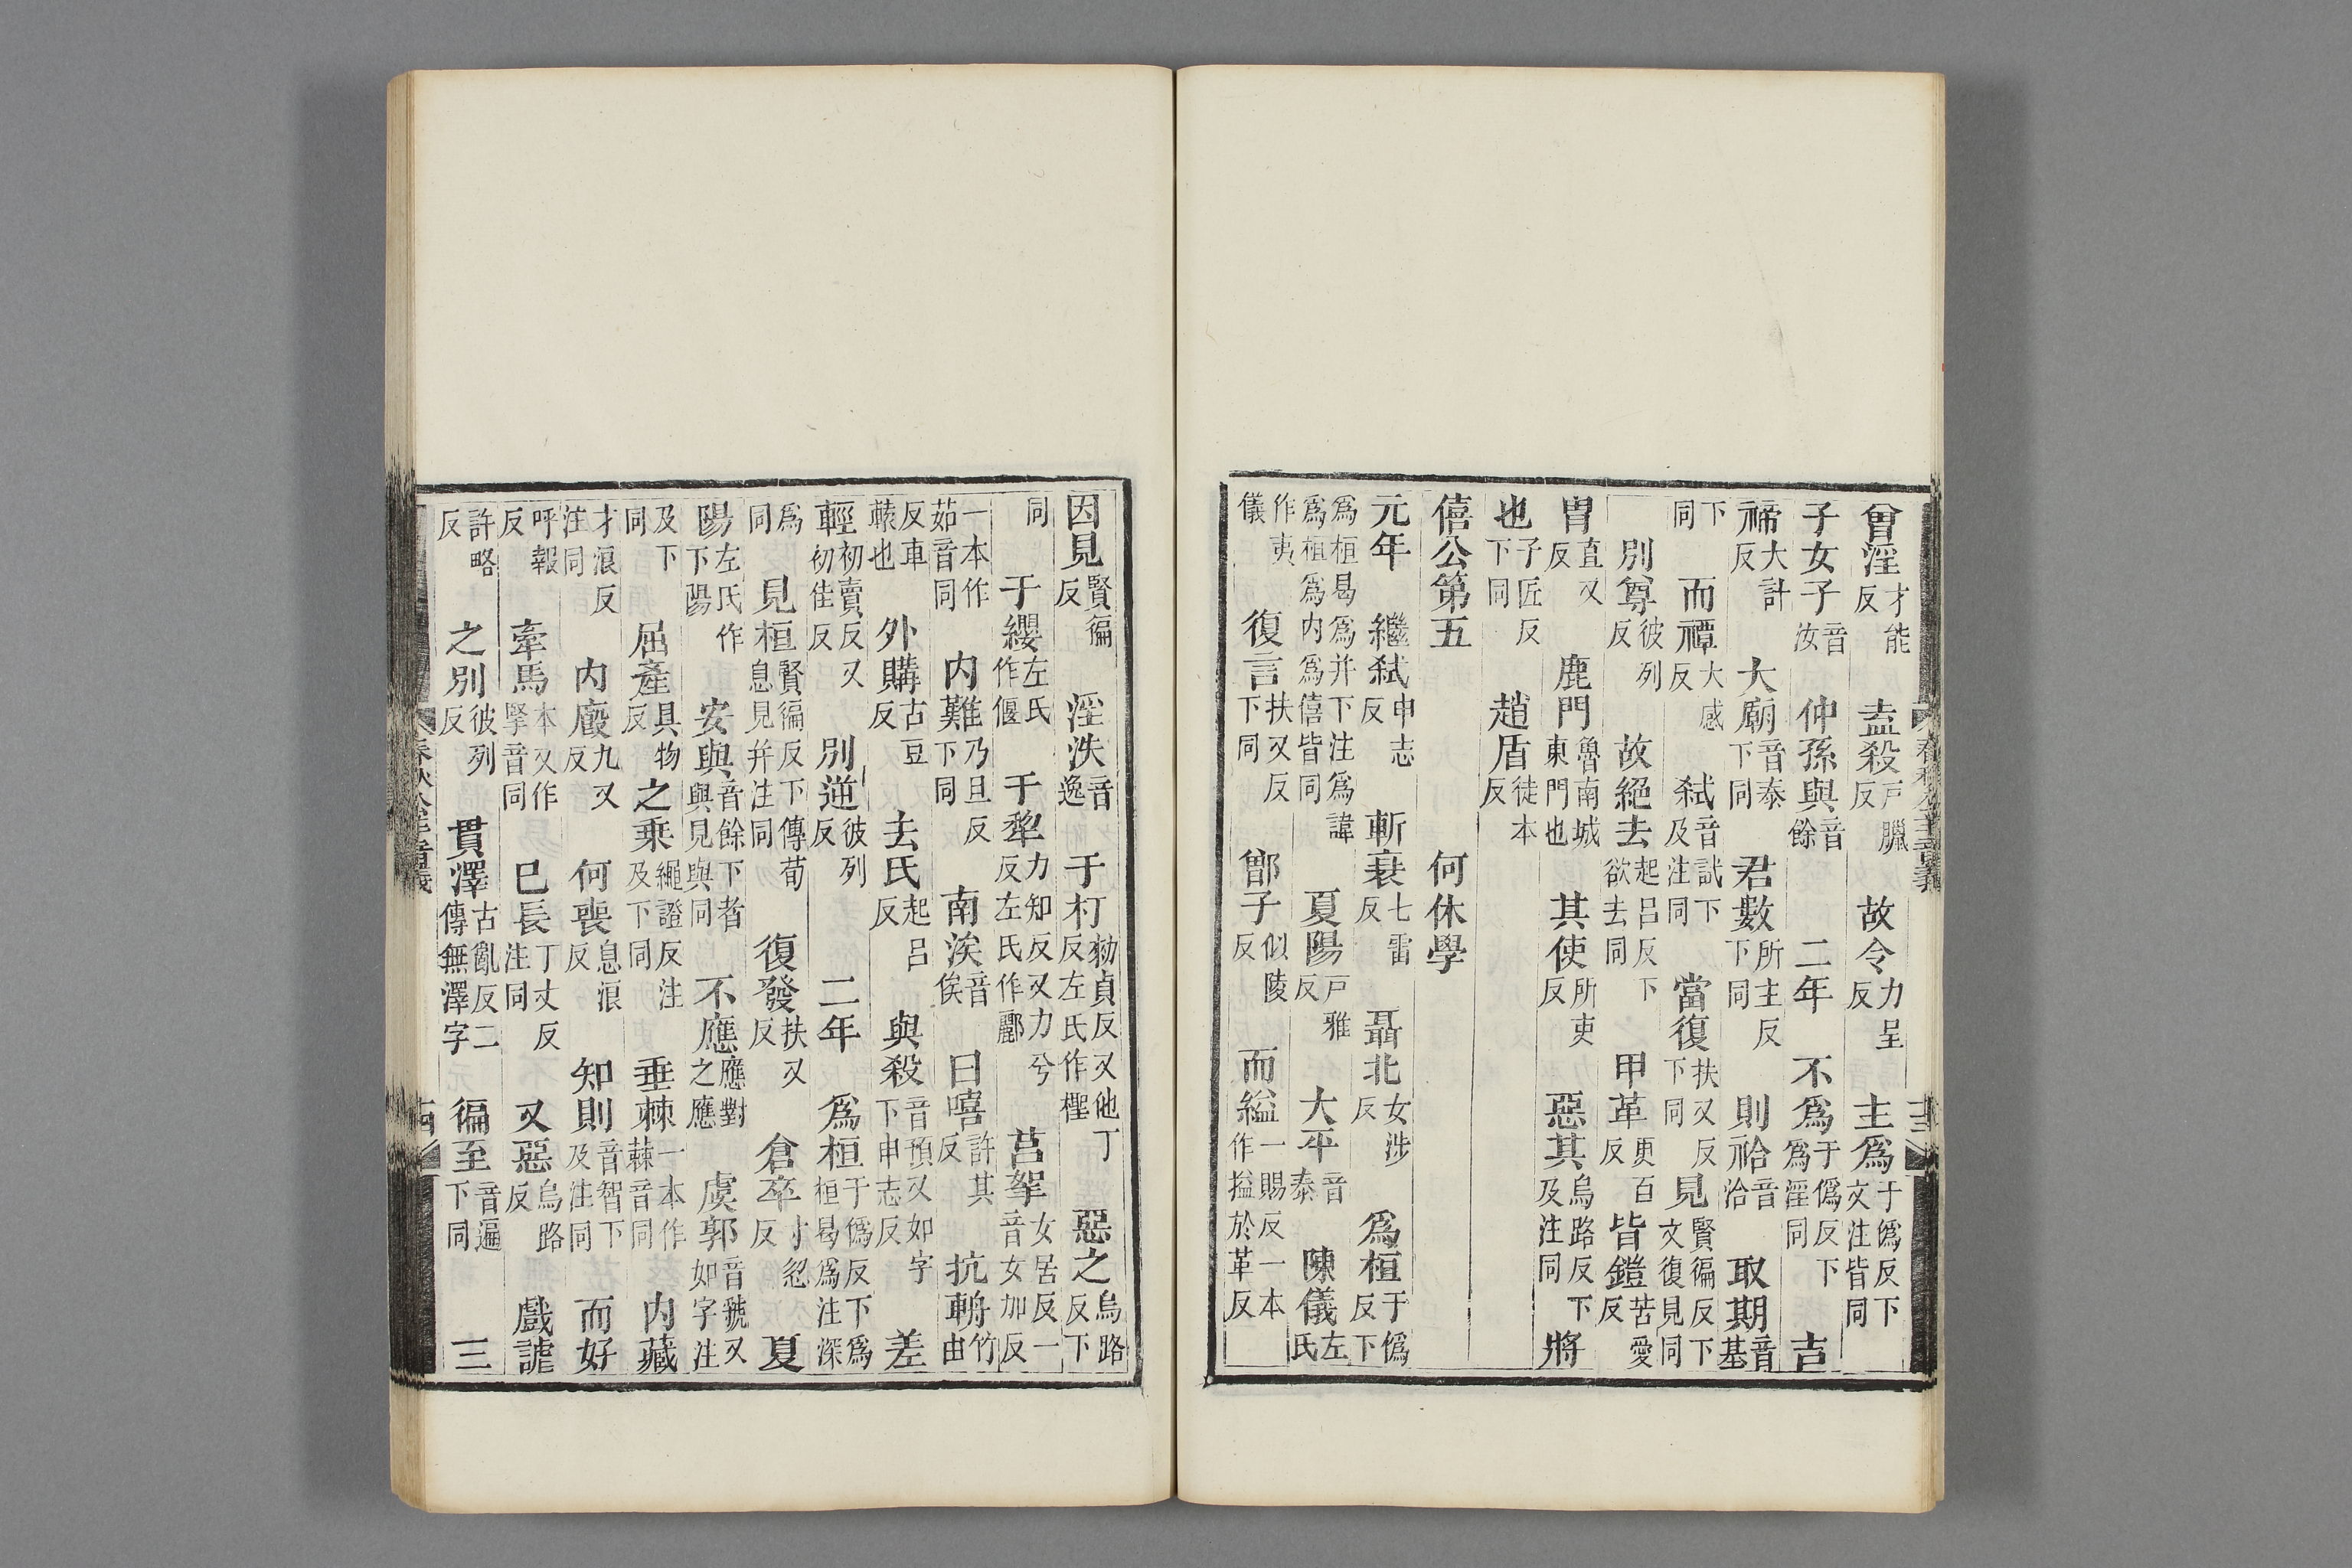 曾淫才能反 盍殺戸臘反 故令力呈反 主爲于僞反下文注皆同
子女子音汝 仲孫與音餘 二年 不爲于僞反下爲淫同 吉
禘大計反 大廟音泰下同 君數所主反下同 則祫音洽 取期音基
下同 而禫大感反 弑音試下及注同 當復扶又反下同 見賢徧反下文復見同
別尊彼列反 故絕去起呂反下欲去同 甲革更百反 皆鎧苦愛反
胄直又反 鹿門魯南城東門也 其使所吏反 惡其烏路反下及注同 將
也子匠反下同 趙盾徒本反
僖公第五 何休學
元年 繼弑申志反 斬衰七雷反 聶北女涉反 爲桓于僞反下
爲桓曷爲并下注爲諱爲桓爲内爲僖皆同 夏陽戸雅反 大平音泰 陳儀左氏
作夷儀 復言扶又反下同 鄫子似陵反 而縊一賜反一本作搤於革反
因見賢徧反 淫泆音逸 于朾勑貞反又他丁反左氏作檉 惡之烏路反下
同 于纓左氏作偃 于犂力知反又力兮反左氏作酈 莒挐女居反一音女加反
一本作茹音同 内難乃旦反下同 南涘音俟 曰嘻許其反 抗輈竹由
反車轅也 外購古豆反 去氏起呂反 與殺音預又如字下申志反 差
輕初賣反又初佳反 別逆彼列反 二年 爲桓于僞反下爲桓曷爲注深
爲同 見桓賢徧反下傳荀息見并注同 復發扶又反 倉卒寸忽反 夏
陽左氏作下陽 安與音餘下者與見與同 不應應對之應 虞郭音虢又如字注
及下同 屈產具物反 之乗繩證反注及下同 垂棘一本作蕀音同 内藏
才浪反注同 内廏九又反 何喪息浪反 知則音智下及注同 而好
呼報反 牽馬本又作掔音同 巳長丁丈反注同 又惡烏路反 戲謔
許略反 之別彼列反 貫澤古亂反二傳無澤字 徧至音遍下同 三
春秋公羊音義